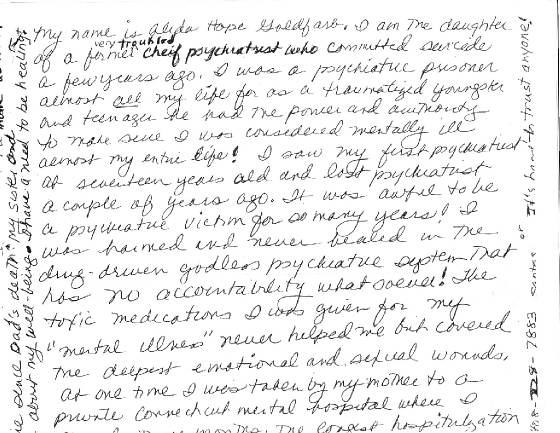 My name is Alida Hope Goldfarb. I am the daughter
very troubled
of a former cheif psychiatrist who committed suicide
a few years ago. I was a psychiatric prisoner
almost all my life for as a traumatized youngster
and teenager he had the power and authority
to make sure I was considered mentally ill
almost my entire life! I saw my first psychiatrist
at seventeen years old and last psychiatrist
a couple of years ago. It was awful to be
a psychiatric victim for so many years! I
was harmed and never healed in the
drug-driven godless psychiatric system that
has no accountability what soever! The
toxic medications I was given for my
"mental illness" never helped me but covered
the deepest emotional and sexual wounds.
at one time I was taken by my mother to a
private Connecticut mental hospital where I
months. The longest hospitalization
since Dad's death. my sister and
about my well-being. I have a need to be healing.
7883 or It's hard to trust anyone!